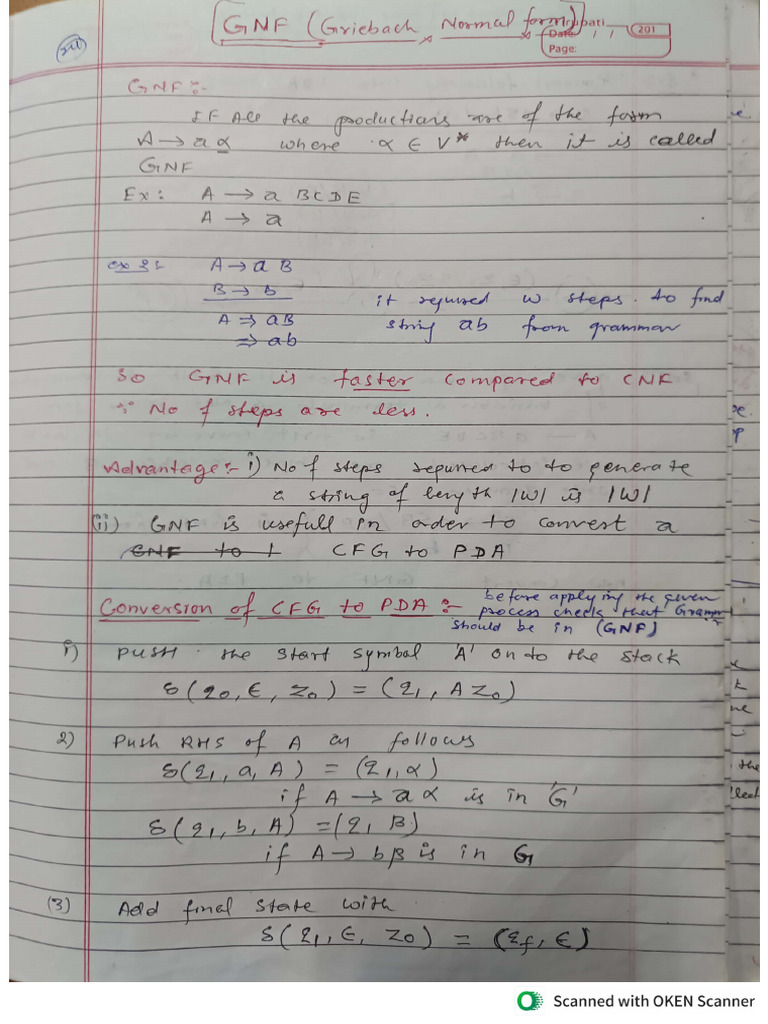 GNF (Griebach Normal form)
Date: / / 201
Page:
GNF :-
If All the productions are of the form
A → a α where α ∈ V* then it is called
GNF
Ex: A → a BCDE
A → a
ex 2: A → a B
B → b
it required w steps. to find
A ⇒ aB string ab from grammar
⇒ ab
So GNF is faster compared to CNF
∵ No of steps are less.
Advantage :- i) No of steps required to to generate
a string of length |W| is |W|
(ii) GNF is usefull in order to convert a
GNF to CFG to PDA
before applying the given
Conversion of CFG to PDA :- process checks that Grammar
should be in (GNF)
i) PUSH the start symbol 'A' on to the stack
δ(q0, ∈, Z0) = (q1, A Z0)
2) Push RHS of A as follows
δ(q1, a, A) = (q1, α)
if A → a α is in 'G'
δ(q1, b, A) = (q1 B)
if A → bβ is in G
(3) Add final state with
δ(q1, ∈, Z0) = (qf, ∈)
Scanned with OKEN Scanner